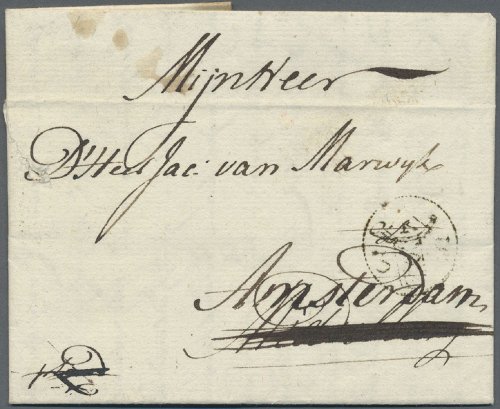 MijnHeer
D'Heer Jac: van Marwyk
Amsterdam